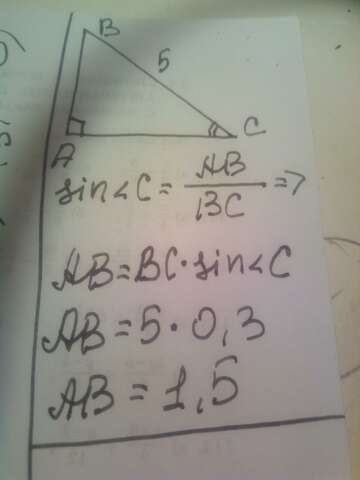 B
5
A
C
sin<C = AB/BC =>
AB=BC·sin<C
AB=5·0,3
AB=1,5